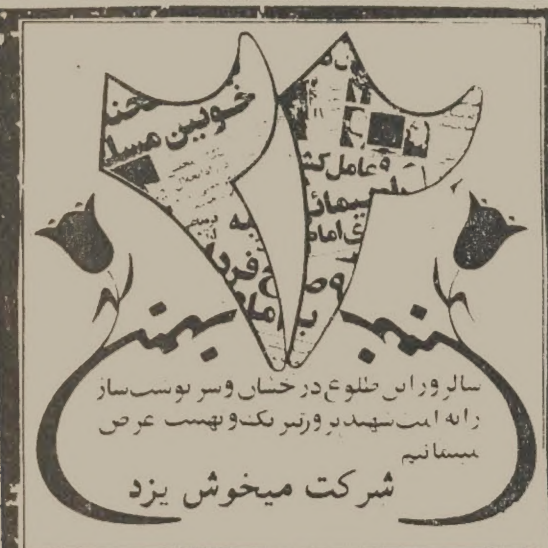 ۲۲
خونین مسا
و عامل کش
ی امام
بهمن بهمن
سالروز این طلوع درخشان و سرنوشت ساز
را به امت شهید پرور تبریک و تهنیت عرض
مینمائیم
شرکت میخوش یزد